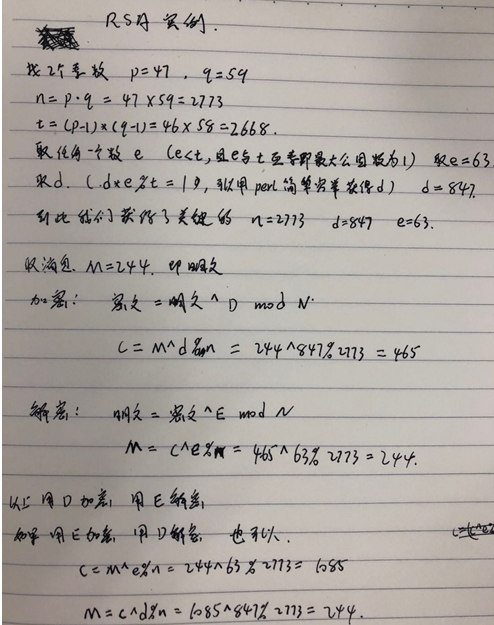 RSA 实例.
找2个素数 p=47 , q=59
n=p·q = 47×59=2773
t=(p-1)*(q-1)=46×58=2668.
取任何一个数 e (e<t,且e与t互素即最大公因数为1) 取e=63
取d. (d*e%t=1即,可以用perl简单穷举获得d) d=847.
到此我们获得了关键的 n=2773 d=847 e=63.
取消息. M=244. 即明文
加密: 密文=明文^D mod N.
C=M^d%n = 244^847%2773=465
解密: 明文=密文^E mod N
M=C^e%n=465^63%2773=244.
以上用D加密,用E解密
如果用E加密,用D解密 也可以.
C=M^e%n=244^63%2773=1085
M=C^d%n=1085^847%2773=244.